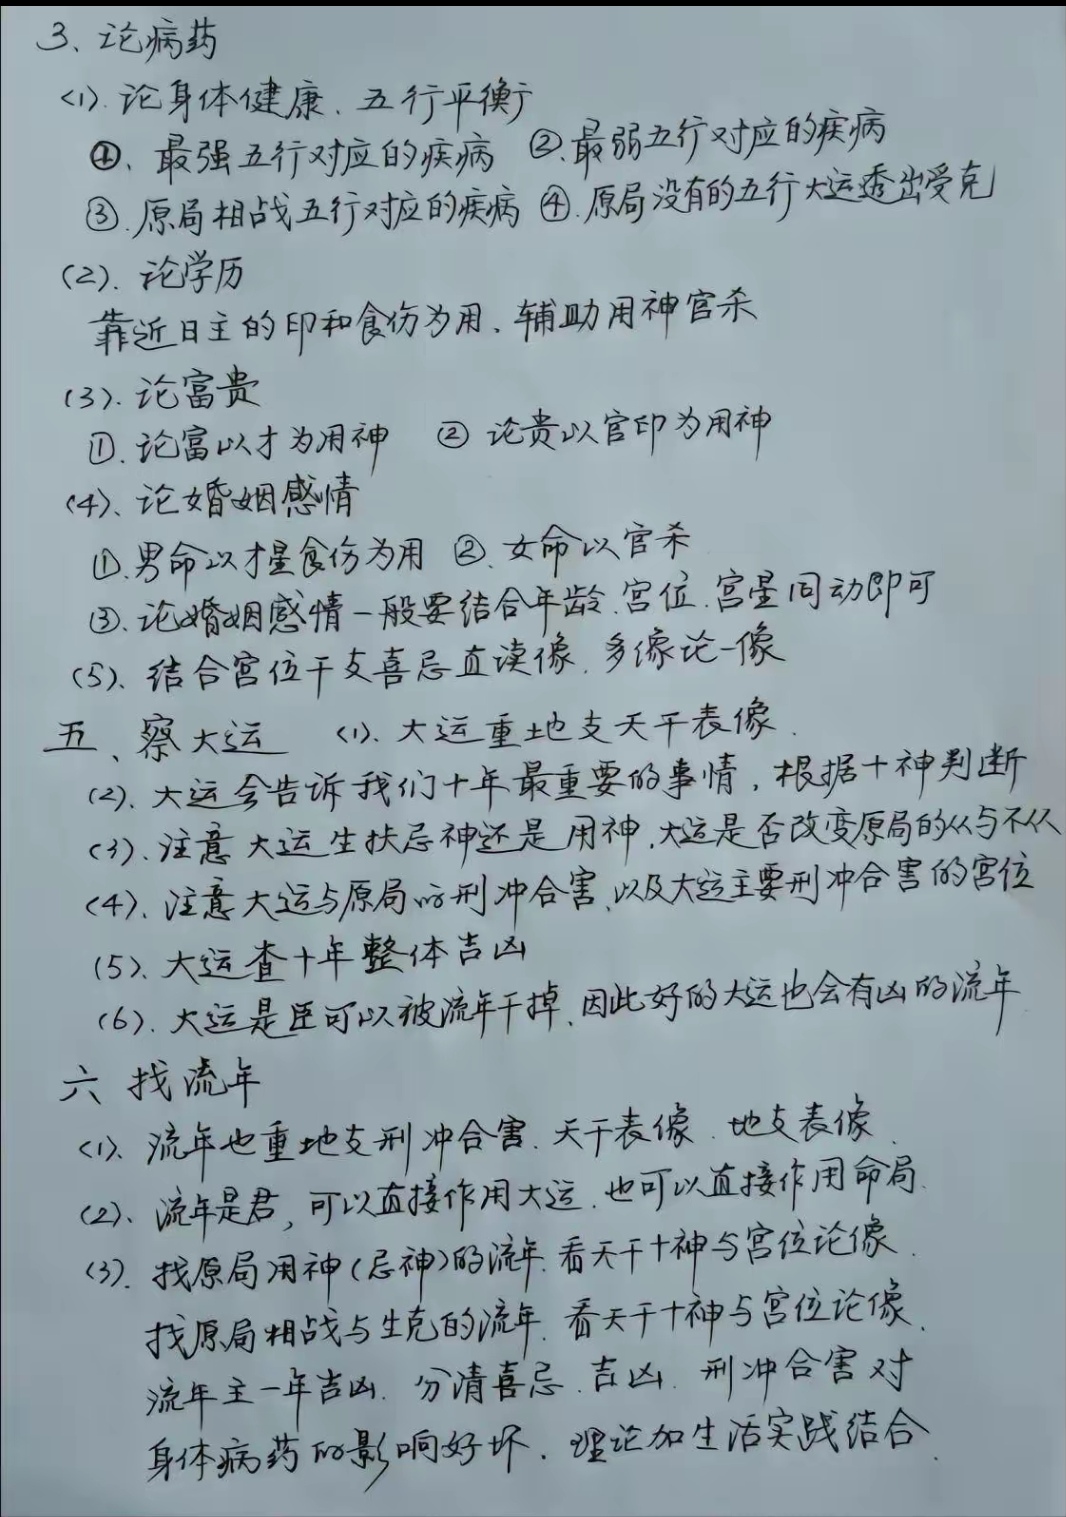 3、论病药
<1>.论身体健康、五行平衡
①、最强五行对应的疾病 ②.最弱五行对应的疾病
③.原局相战五行对应的疾病 ④.原局没有的五行大运透出受克
(2).论学历
靠近日主的印和食伤为用、辅助用神官杀
(3).论富贵
①.论富以才为用神 ② 论贵以官印为用神
(4)、论婚姻感情
①.男命以才星食伤为用 ②.女命以官杀
③.论婚姻感情一般要结合年龄.宫位.宫星同动即可
(5)、结合宫位干支喜忌直读像.多像论一像
五、察大运 <1>.大运重地支天干表像.
(2).大运会告诉我们十年最重要的事情，根据十神判断
(3).注意大运生扶忌神还是用神.大运是否改变原局的从与不从
(4)、注意大运与原局的刑冲合害、以及大运主要刑冲合害的宫位
(5)、大运查十年整体吉凶
(6).大运是臣可以被流年干掉、因此好的大运也会有凶的流年
六 找流年
<1>、流年也重地支刑冲合害.天干表像.地支表像.
(2)、流年是君，可以直接作用大运.也可以直接作用命局.
(3).找原局用神(忌神)的流年.看天干十神与宫位论像.
找原局相战与生克的流年.看天干十神与宫位论像.
流年主一年吉凶.分清喜忌.吉凶.刑冲合害对
身体病药的影响好坏.理论加生活实践结合.